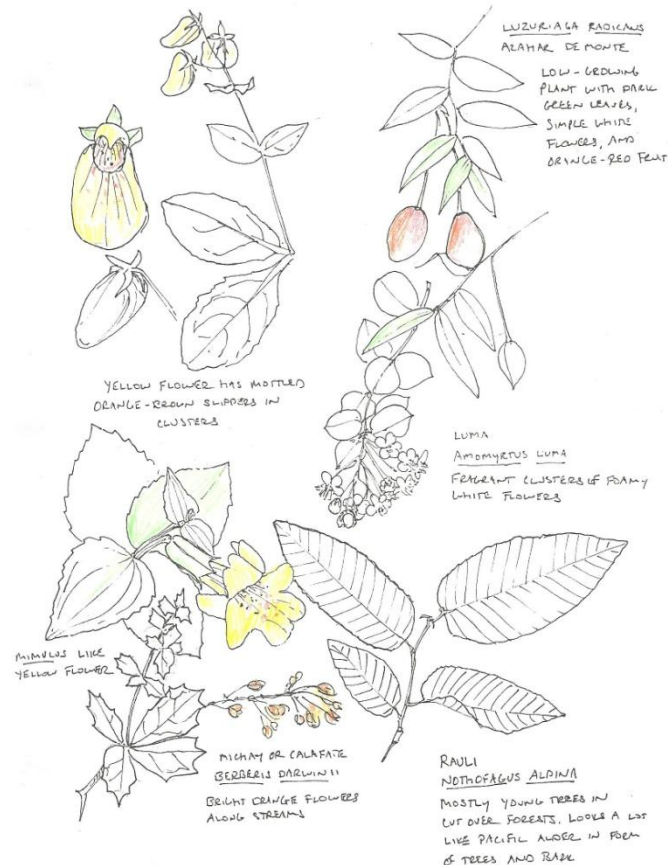 LUZURIAGA RADICANS
AZAHAR DE MONTE
LOW-GROWING
PLANT WITH DARK
GREEN LEAVES,
SIMPLE WHITE
FLOWERS, AND
ORANGE-RED FRUIT
YELLOW FLOWER HAS MOTTLED
ORANGE-BROWN SLIPPERS IN
CLUSTERS
LUMA
AMOMYRTUS LUMA
FRAGRANT CLUSTERS OF FOAMY
WHITE FLOWERS
MIMULUS LIKE
YELLOW FLOWER
MICHAY OR CALAFATE
BERBERIS DARWINII
BRIGHT ORANGE FLOWERS
ALONG STREAMS
RAULI
NOTHOFAGUS ALPINA
MOSTLY YOUNG TREES IN
CUT OVER FORESTS. LOOKS A LOT
LIKE PACIFIC ALDER IN FORM
OF TREES AND BARK